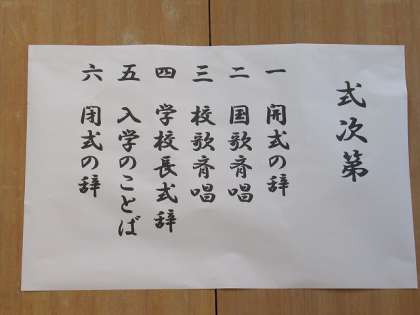 式次第
一 開式の辞
二 国歌斉唱
三 校歌斉唱
四 学校長式辞
五 入学のことば
六 閉式の辞